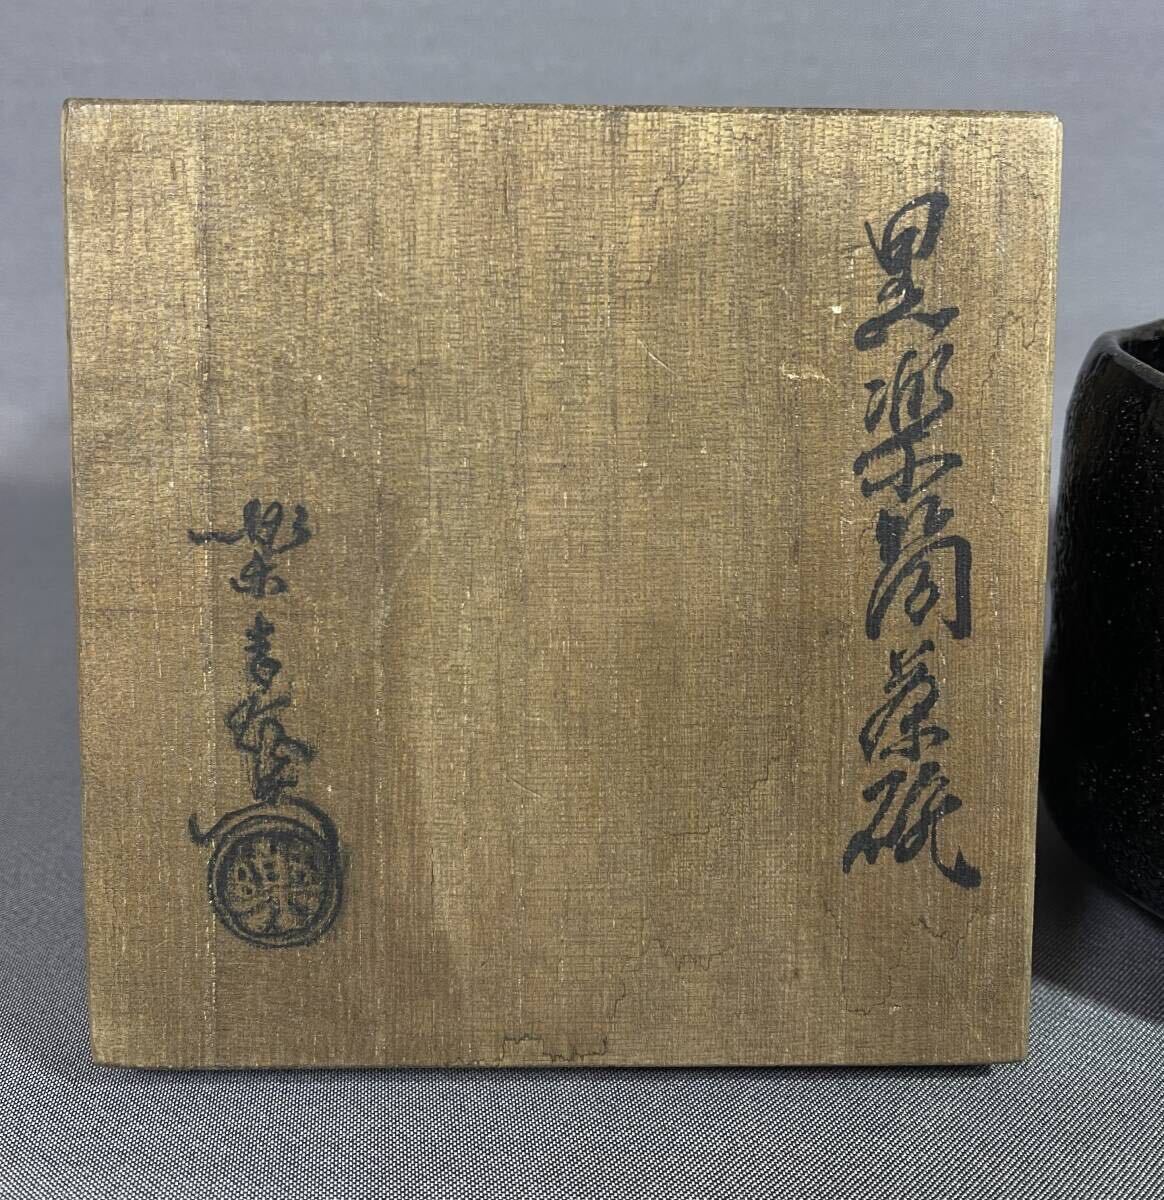 黒楽筒茶碗
楽吉左衛門
樂